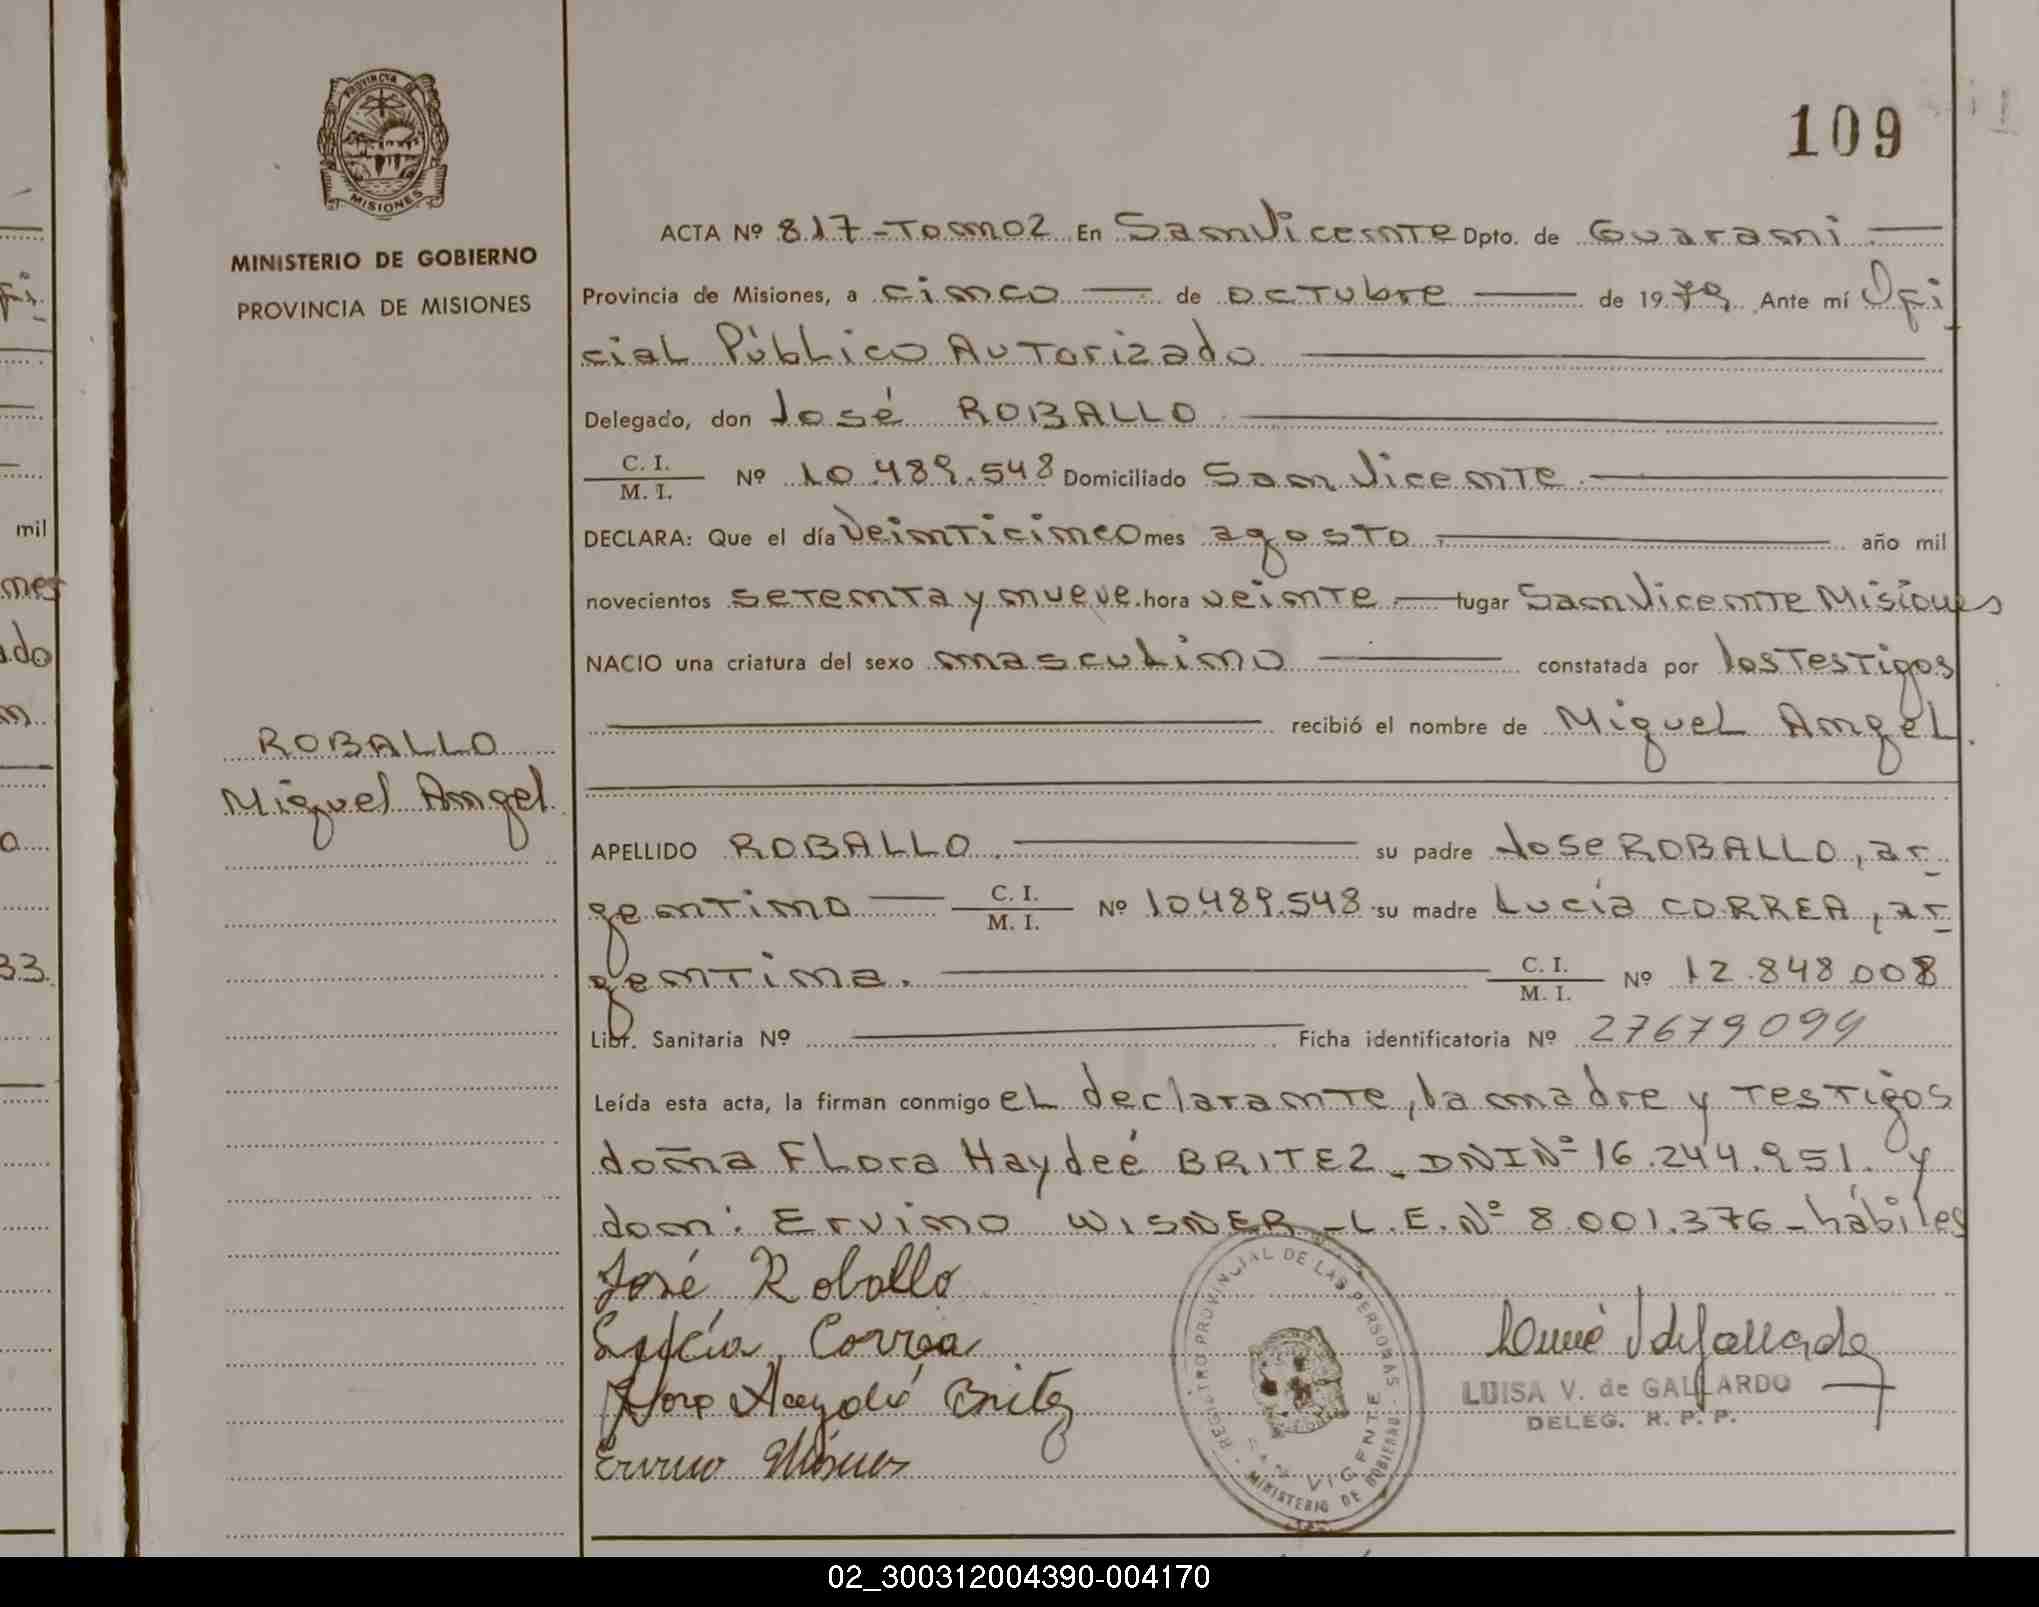 109
PROVINCIA DE
MISIONES
MINISTERIO DE GOBIERNO
PROVINCIA DE MISIONES
ACTA Nº 817-Tomo2 En San Vicente Dpto. de Guarani
Provincia de Misiones, a cinco de octubre de 1979 Ante mí Ofi
cial Público Autorizado
Delegado, don José ROBALLO
C. I.
M. I. Nº 10.489.548 Domiciliado San Vicente
DECLARA: Que el día veinticinco mes agosto año mil
novecientos setenta y nueve hora veinte lugar San Vicente Misiones
NACIO una criatura del sexo masculino constatada por los Testigos
recibió el nombre de Miguel Angel.
ROBALLO
Miguel Angel.
APELLIDO ROBALLO su padre Jose ROBALLO, ar-
gentino C. I.
M. I. Nº 10.489.548 su madre Lucía CORREA, ar-
gentina. C. I.
M. I. Nº 12.848.008
Libr. Sanitaria Nº Ficha identificatoria Nº 27679099
Leída esta acta, la firman conmigo el declarante, la madre y Testigos
doña Flora Haydeé BRITEZ-DNI Nº 16.244.951. y
don: Ervino WISNER-L.E.Nº 8.001.376-hábiles
José Roballo
Lucía Correa
Haydeé Britez
Ervino
REGISTRO PROVINCIAL DE LAS PERSONAS
SAN VICENTE
MINISTERIO DE GOBIERNO
LUISA V. de GALLARDO
DELEG. R. P. P.
mil
33.
02_300312004390-004170